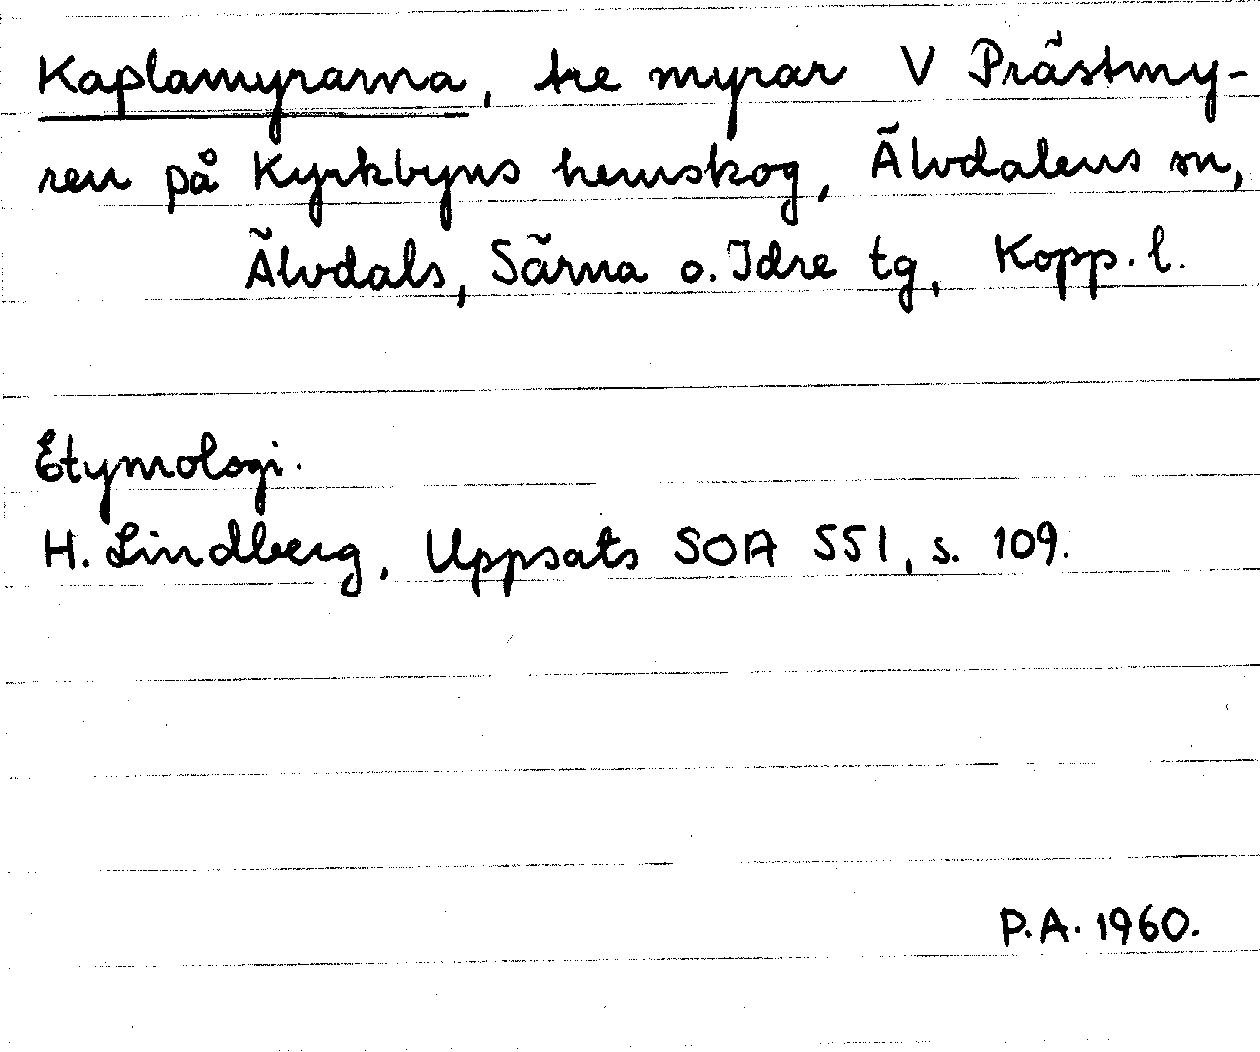 Kaplamyrarna, tre myrar V Prästmy-
ren på Kyrkbyns hemskog, Älvdalens sn,
Älvdals, Särna o. Idre tg, Kopp. l.
Etymologi.
H. Lindberg, Uppsats SOA 551, s. 109.
P.A. 1960.